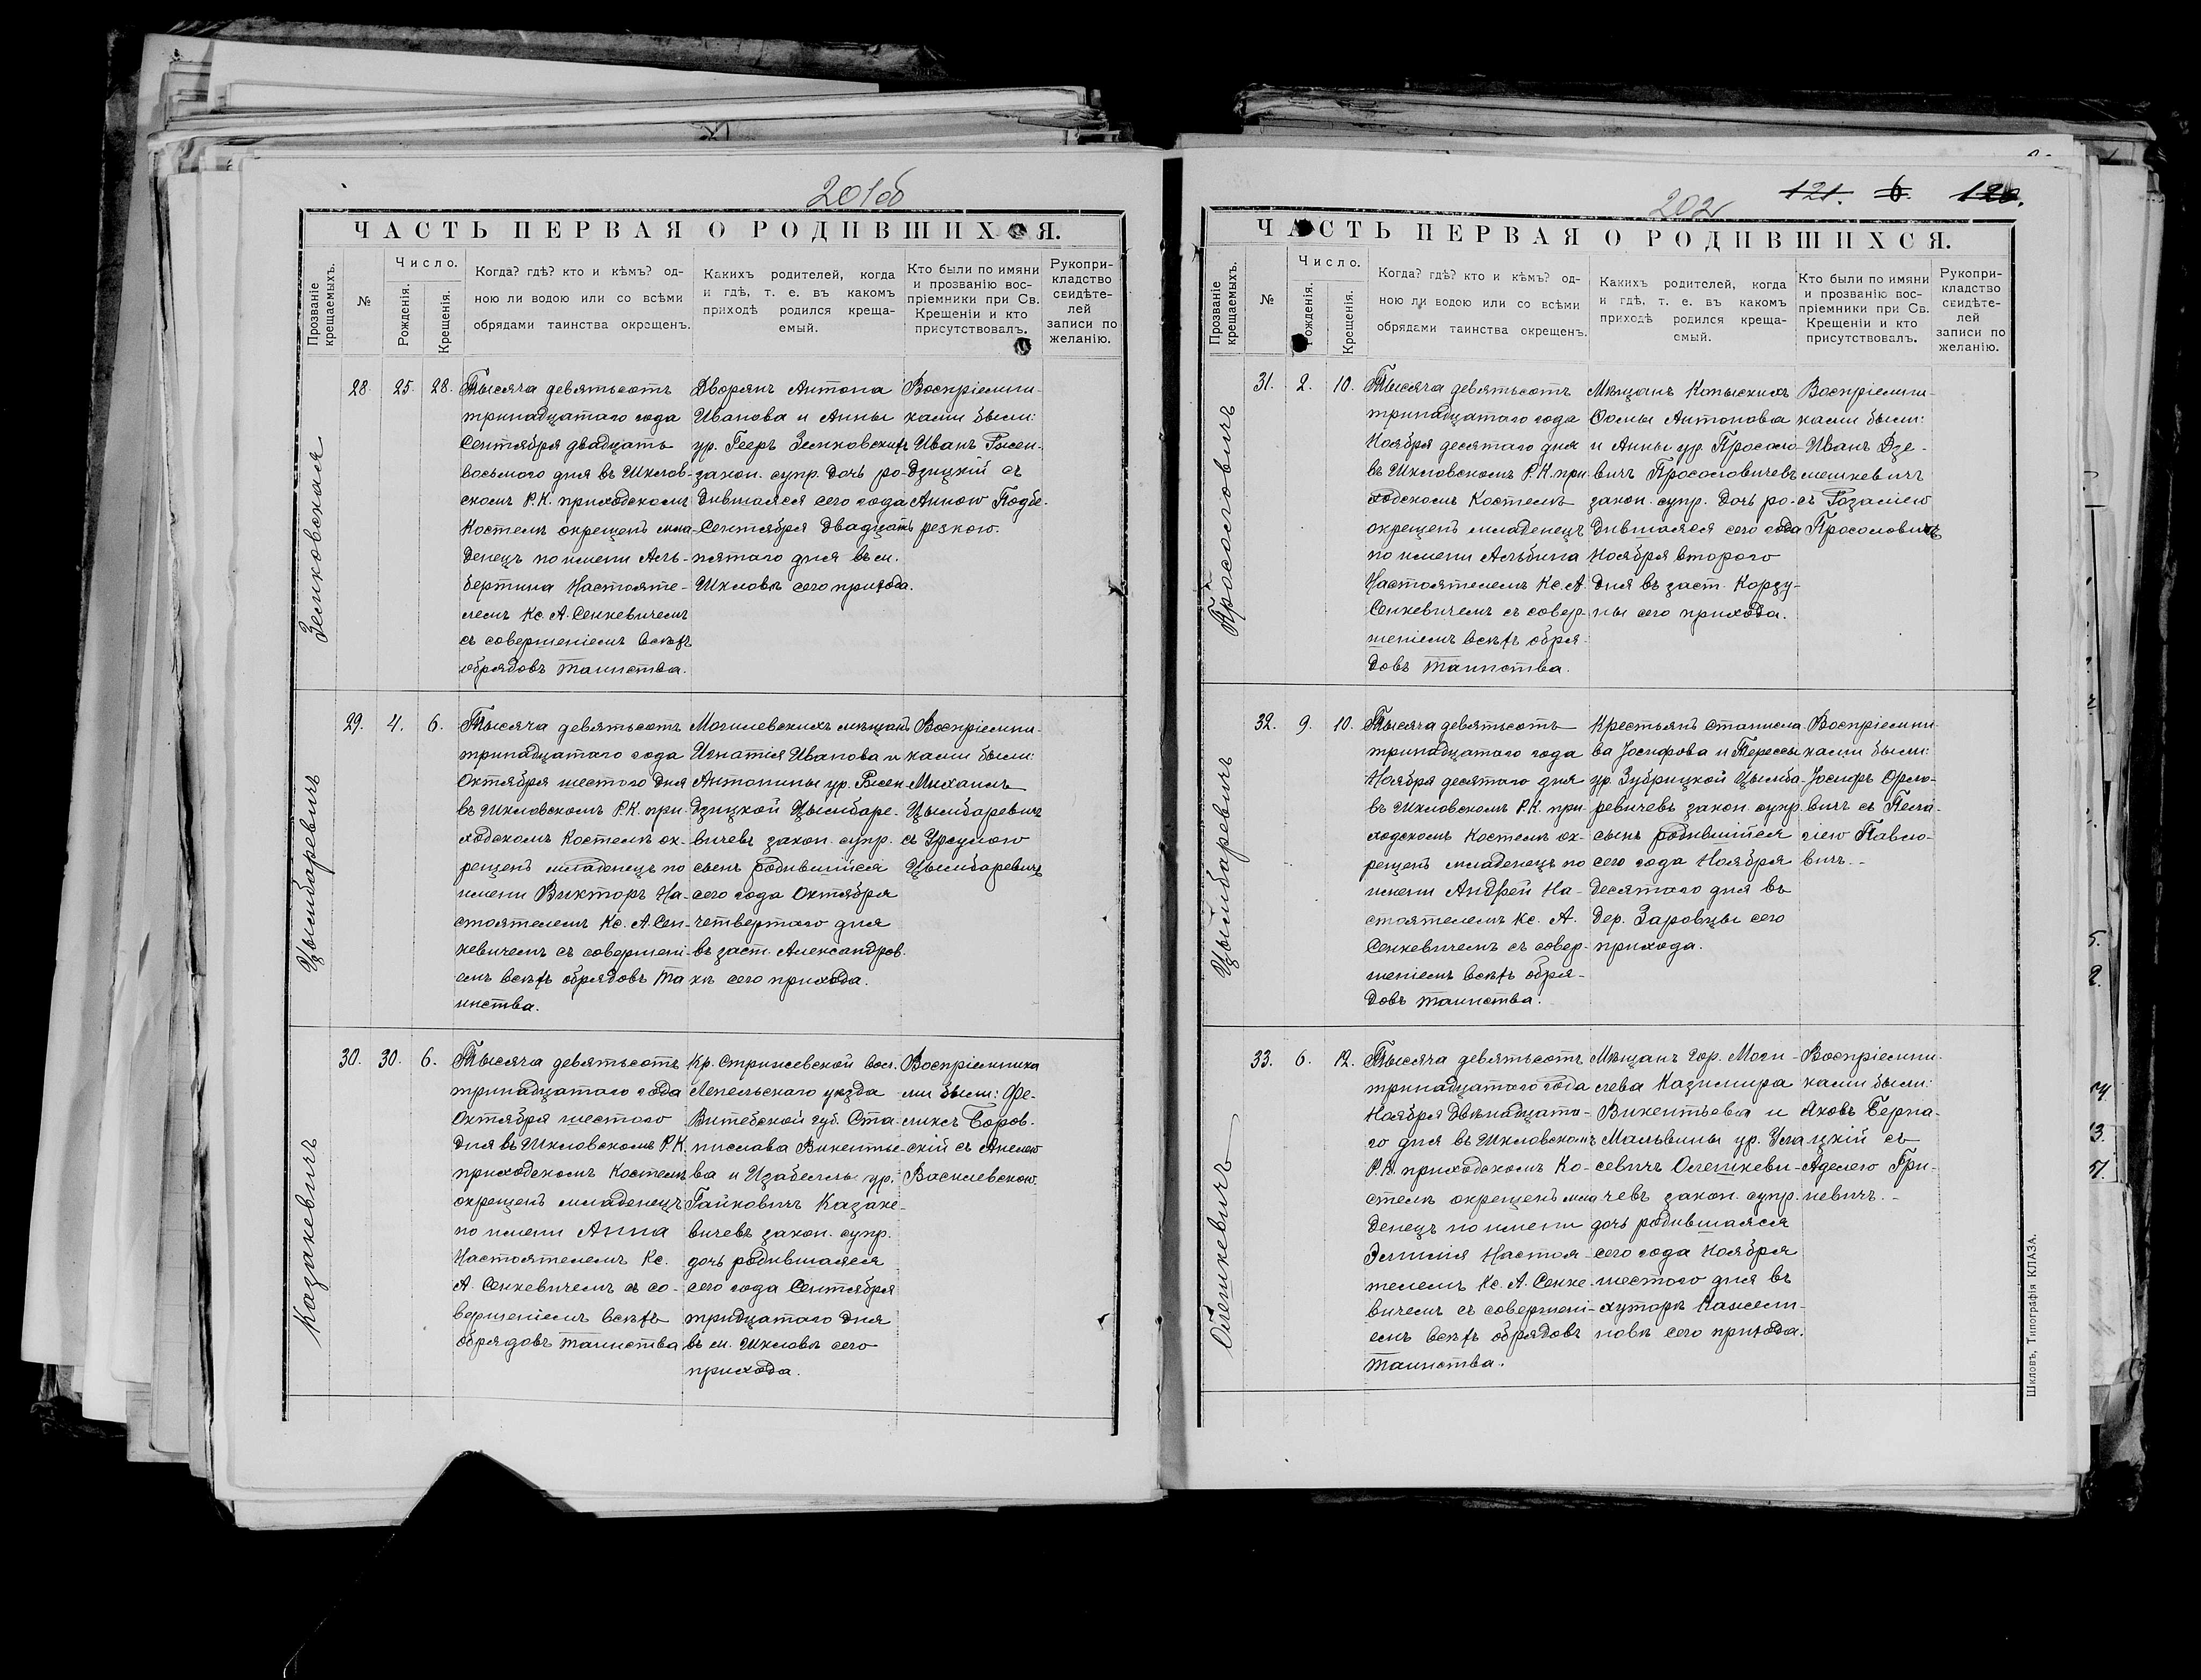 201об
ЧАСТЬ ПЕРВАЯ О РОДИВШИХСЯ.
Прозваніе крещаемыхъ.
№
Число.
Рожденія.
Крещенія.
Когда? гдѣ? кто и кѣмъ? од-
ною ли водою или со всѣми
обрядами таинства окрещенъ.
Какихъ родителей, когда
и гдѣ, т. е. въ какомъ
приходѣ родился креща-
емый.
Кто были по имяни
и прозванію вос-
пріемники при Св.
Крещеніи и кто
присутствовалъ.
Рукопри-
кладство
свидѣте-
лей
записи по
желанію.
Зенковская
28. 25. 28.
Тысяча девятьсотъ
тринадцатаго года
Сентября двадцать
восьмого дня въ Шклов-
скомъ Р.К. приходскомъ
Костелѣ окрещенъ мла-
денецъ по имени Аль-
бертина Настояте-
лемъ Кс. А. Сенкевичемъ
съ совершеніемъ всѣхъ
обрядовъ таинства.
Дворянъ Антона
Иванова и Анны
ур. Гееръ Зенковскихъ
закон. супр. дочь ро-
дившаяся сего года
Сентября двадцать
пятаго дня въ м.
Шкловѣ сего прихода.
Воспріемни-
ками были:
Иванъ Рысен-
дзицкій съ
Анною Подбе-
резкою.
Цымбаревичъ
29. 4. 6.
Тысяча девятьсотъ
тринадцатаго года
Октября шестого дня
въ Шкловскомъ Р.К. при-
ходскомъ Костелѣ ок-
рещенъ младенецъ по
имени Викторъ На-
стоятелемъ Кс. А. Сен-
кевичемъ съ совершені-
емъ всѣхъ обрядовъ та
инства.
Могилевскихъ мѣщанъ
Игнатія Иванова и
Антонины ур. Рысен-
дзицкой Цымбаре-
вичевъ закон. супр.
сынъ родившійся
сего года Октября
четвертаго дня
въ заст. Александров-
кѣ сего прихода.
Воспріемни-
ками были:
Михаилъ
Цымбаревичъ
съ Урсулою
Цымбаревичъ
Казакевичъ
30. 30. 6.
Тысяча девятьсотъ
тринадцатаго года
Октября шестого
дня въ Шкловскомъ Р.К.
приходскомъ Костелѣ
окрещенъ младенецъ
по имени Анна
Настоятелемъ Кс.
А. Сенкевичемъ съ со-
вершеніемъ всѣхъ
обрядовъ таинства
Кр. Стрижевской вол.
Лепельскаго уѣзда
Витебской губ. Ста-
нислава Викентье-
ва и Изабеллы ур.
Гайковичъ Казаке-
вичевъ закон. супр.
дочь родившаяся
сего года Сентября
тридцатаго дня
въ м. Шкловѣ сего
прихода.
Воспріемника
ми были: Фе-
ликсъ Боров-
скій съ Анелею
Василевскою.
202
121. 6. 120.
ЧАСТЬ ПЕРВАЯ О РОДИВШИХСЯ.
Прозваніе крещаемыхъ.
№
Число.
Рожденія.
Крещенія.
Когда? гдѣ? кто и кѣмъ? од-
ною ли водою или со всѣми
обрядами таинства окрещенъ.
Какихъ родителей, когда
и гдѣ, т. е. въ какомъ
приходѣ родился креща-
емый.
Кто были по имяни
и прозванію вос-
пріемники при Св.
Крещеніи и кто
присутствовалъ.
Рукопри-
кладство
свидѣте-
лей
записи по
желанію.
Просоловичъ
31. 2. 10.
Тысяча девятьсотъ
тринадцатаго года
Ноября десятаго дня
въ Шкловскомъ Р.К. при-
ходскомъ Костелѣ
окрещенъ младенецъ
по имени Альбина
Настоятелемъ Кс. А
Сенкевичемъ съ совер-
шеніемъ всѣхъ обря-
довъ таинства.
Мѣщанъ Копысскихъ
Ѳомы Антонова
и Анны ур. Просоло-
вичъ Просоловичевъ
закон. супр. дочь ро-
дившаяся сего года
Ноября второго
дня въ заст. Корзу-
ны сего прихода.
Воспріемни-
ками были:
Иванъ Дзе-
мешкевичъ
съ Розаліею
Просоловичъ
Цымбаревичъ
32. 9. 10.
Тысяча девятьсотъ
тринадцатаго года
Ноября десятаго дня
въ Шкловскомъ Р.К. при-
ходскомъ Костелѣ ок-
рещенъ младенецъ по
имени Андрей На-
стоятелемъ Кс. А.
Сенкевичемъ съ совер-
шеніемъ всѣхъ обря-
довъ таинства.
Крестьянъ Станисла
ва Іосифова и Терессы
ур. Зубрицкой Цымба-
ревичевъ закон. супр.
сынъ родившійся
сего года Ноября
десятаго дня въ
дер. Заровцы сего
прихода.
Воспріемни-
ками были:
Іосифъ Орло-
вичъ съ Пела-
гіею Павло-
вичъ.-
Олешкевичъ
33. 6. 12.
Тысяча девятьсотъ
тринадцатаго года
Ноября двѣнадцата-
го дня въ Шкловскомъ
Р.К. приходскомъ Ко-
стелѣ окрещенъ мла
денецъ по имени
Эмилія Настоя-
телемъ Кс. А. Сенке-
вичемъ съ совершені-
емъ всѣхъ обрядовъ
таинства.
Мѣщанъ гор. Моги-
лева Казимира
Викентьева и
Мальвины ур.
севичъ Олешкеви-
чевъ закон. супр.
дочь родившаяся
сего года Ноября
шестого дня въ
хуторѣ
новѣ сего прихода.
Воспріемни-
ками были:
Яковъ Берна-
цкій съ
Аделею Гри-
невичъ.-
Шкловъ, Типографія КЛАЗА.